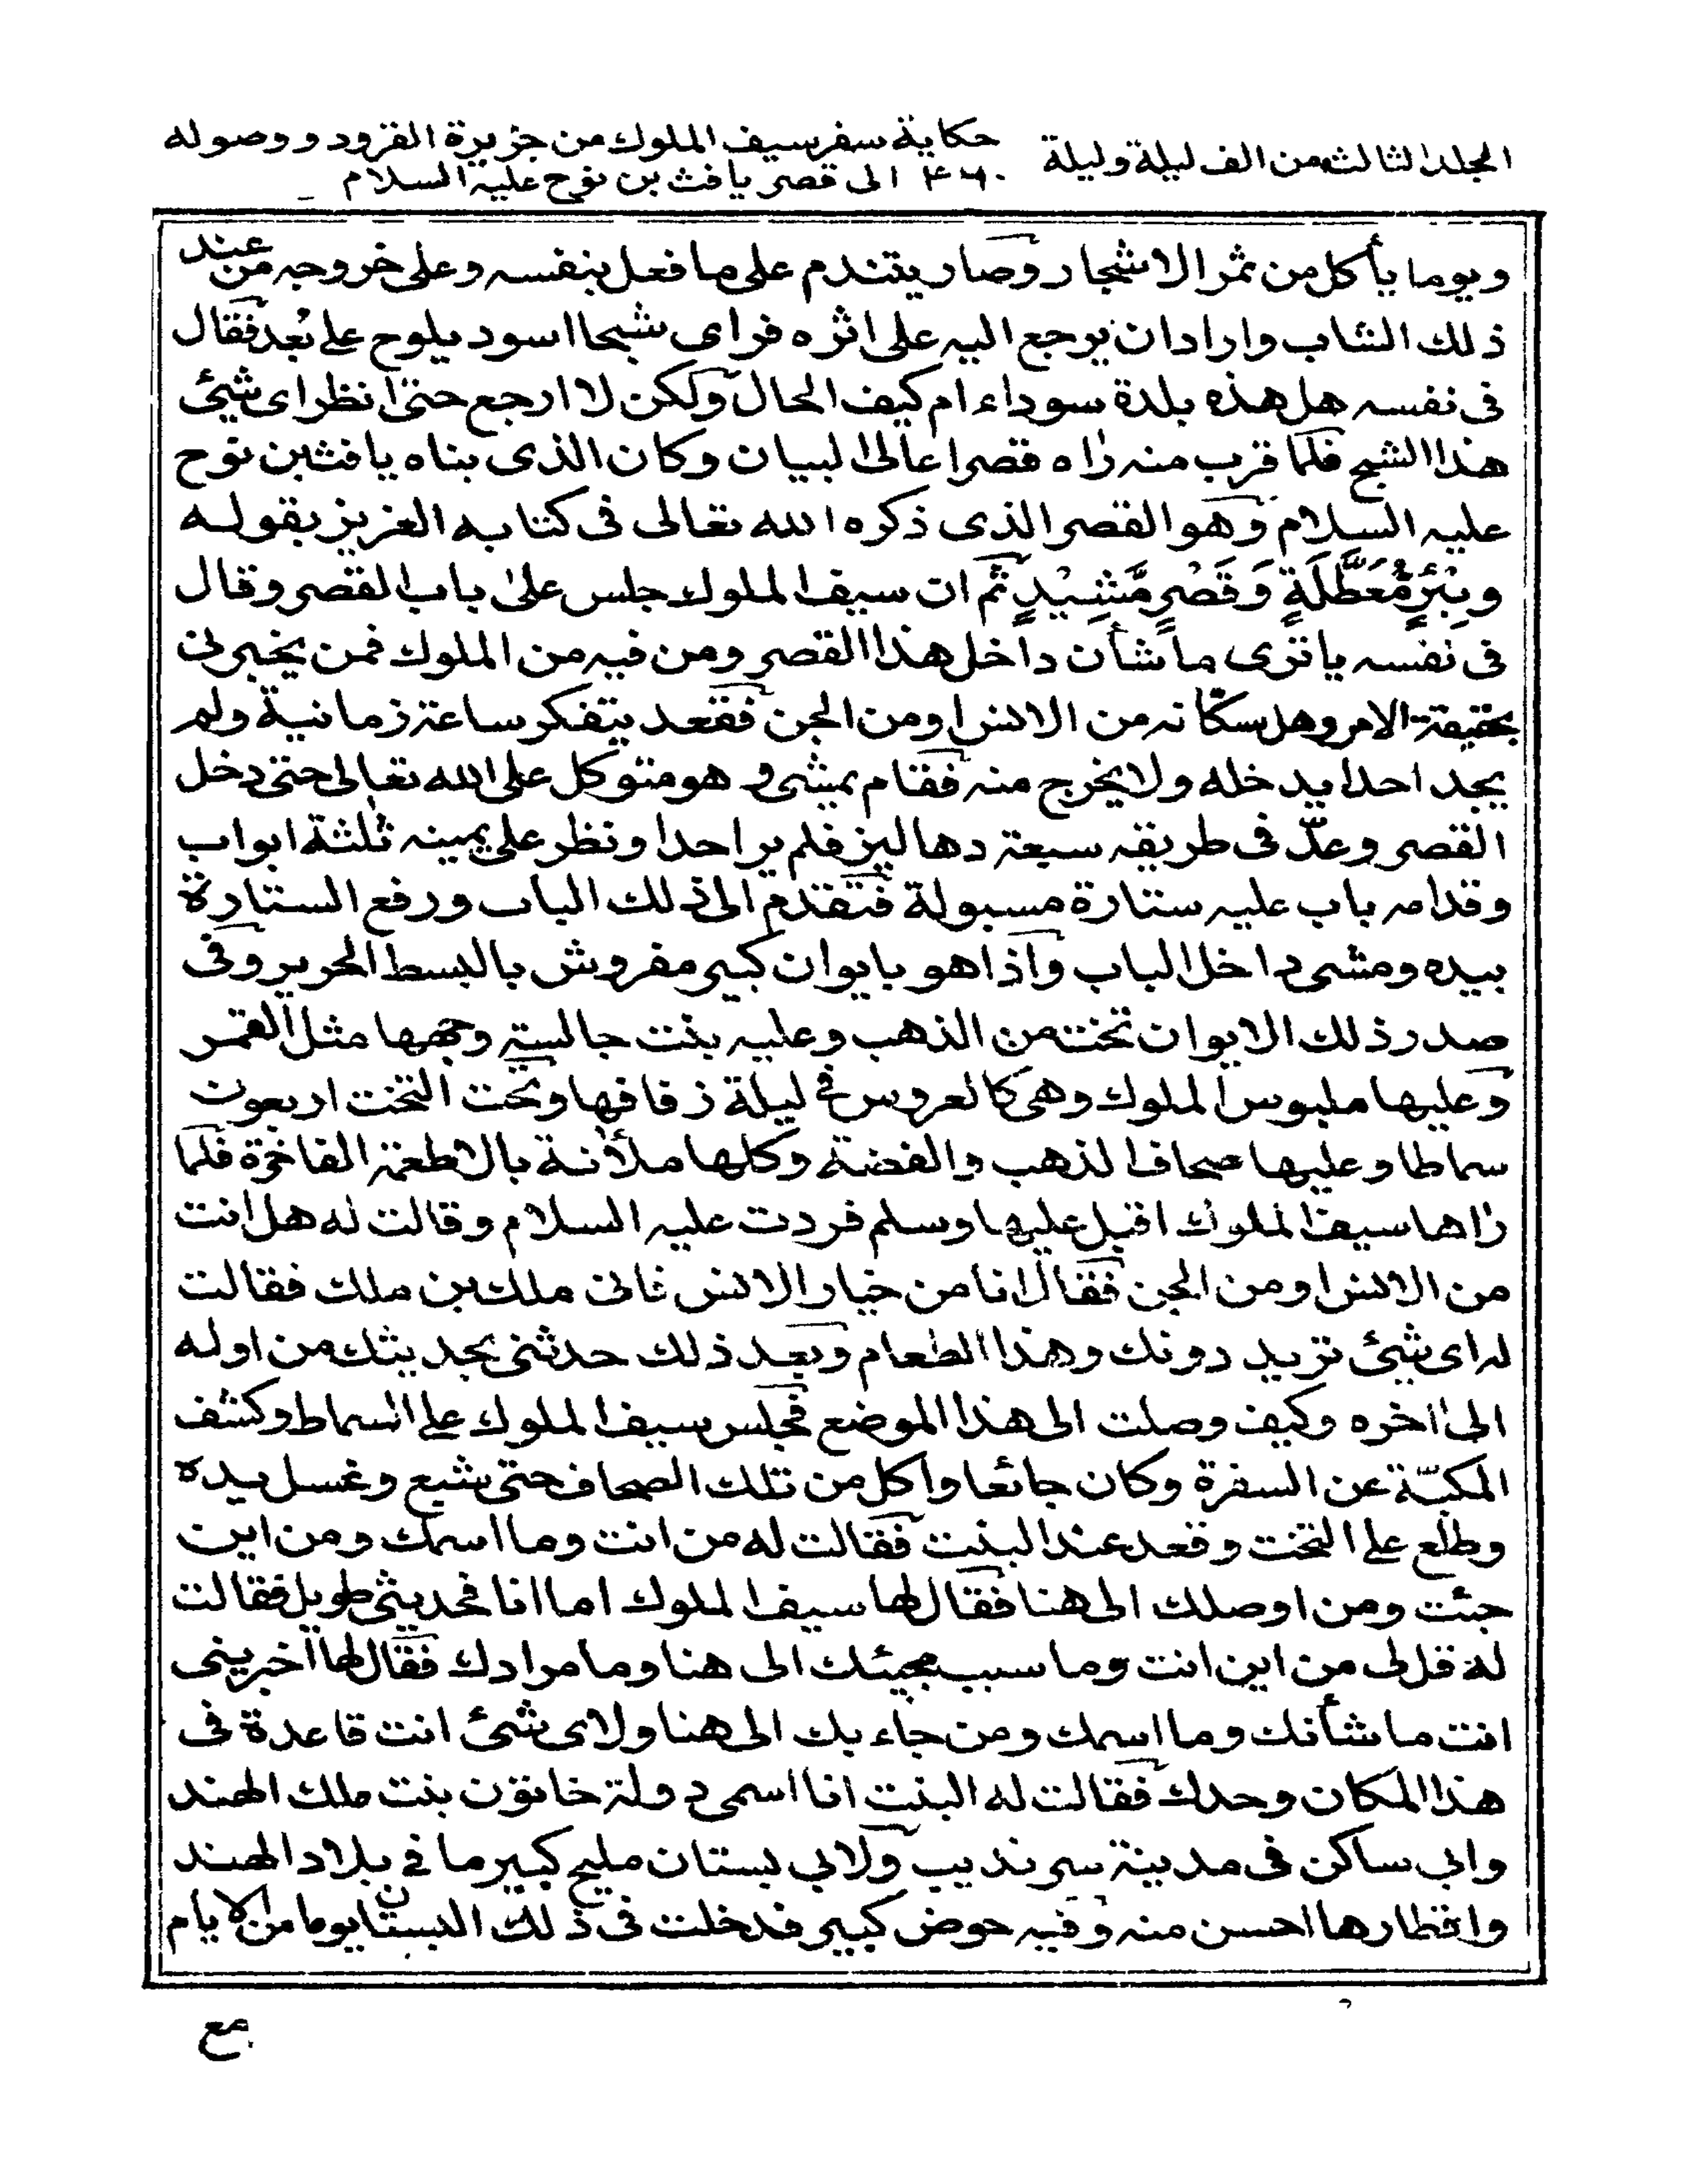 المجلد الثالث من الف ليلة وليلة
حكاية سفر سيف الملوك من جزيرة القرود ووصوله
۴۶۰ الى قصر يافث بن نوح عليه السلام
ويوما يأكل من ثمر الاشجار وصار يتندم على ما فعل بنفسه وعلى خروجه من عند
ذلك الشاب واراد ان يرجع اليه على اثره فراى شبحا اسود يلوح على بُعد فقال
فى نفسه هل هذه بلدة سوداء ام كيف الحال ولكن لا ارجع حتى انظر اى شيئ
هذا الشبح فلما قرب منه رٰاه قصرا عالى البيان وكان الذى بناه يافث بن نوح
عليه السلام وهو القصر الذى ذكره الله تعالى فى كتابه العزيز بقوله
وبِئْرٍ مُّعَطَّلَةٍ وَقَصْرٍ مَّشِيْدٍ ثم ان سيف الملوك جلس علىٰ باب القصر وقال
فى نفسه يا ترى ما شأن داخل هذا القصر ومن فيه من الملوك فمن يخبرنى
بحقيقة الامر وهل سكّانه من الانس او من الجن فقعد يتفكر ساعة زمانية ولم
يجد احدا يدخله ولا يخرج منه فقام يمشى و هو متوكل على الله تعالى حتى دخل
القصر وعدّ فى طريقه سبعة دهاليز فلم ير احدا ونظر على يمينه ثلٰثة ابواب
وقدامه باب عليه ستارة مسبولة فتقدم الى ذلك الباب ورفع الستارة
بيده ومشى داخل الباب واذا هو بايوان كبير مفروش بالبسط الحرير وفى
صدر ذلك الايوان تخت من الذهب وعليه بنت جالسة وجهها مثل القمر
وعليها ملبوس الملوك وهى كالعروس فى ليلة زفافها وتحت التخت اربعون
سماطا وعليها صحاف الذهب والفضة وكلها ملأنة بالاطعمة الفاخرة فلما
رٰاها سيف الملوك اقبل عليها وسلم فردت عليه السلام وقالت له هل انت
من الانس او من الجن فقال انا من خيار الانس فانى ملك بن ملك فقالت
له اى شيئ تريد دونك وهذا الطعام وبعد ذلك حدثنى بحديثك من اوله
الى اٰخره وكيف وصلت الى هذا الموضع فجلس سيف الملوك على السماط وكشف
المكبّة عن السفرة وكان جائعا واكل من تلك الصحاف حتى شبع وغسل يده
وطلع على التخت وقعد عند البنت فقالت له من انت وما اسمك ومن اين
جئت ومن اوصلك الى هنا فقال لها سيف الملوك اما انا فحديثى طويل فقالت
له قل لى من اين انت وما سبب مجيئك الى هنا وما مرادك فقال لها اخبرينى
انت ما شأنك وما اسمك ومن جاء بك الى هنا ولاى شئ انت قاعدة فى
هذا المكان وحدك فقالت له البنت انا اسمى دولة خاتون بنت ملك الهند
وابى ساكن فى مدينة سرنديب ولابى بستان مليح كبير ما فى بلاد الهند
واقطارها احسن منه وفيه حوض كبير فدخلت فى ذلك البستان يوما من الايام
مع